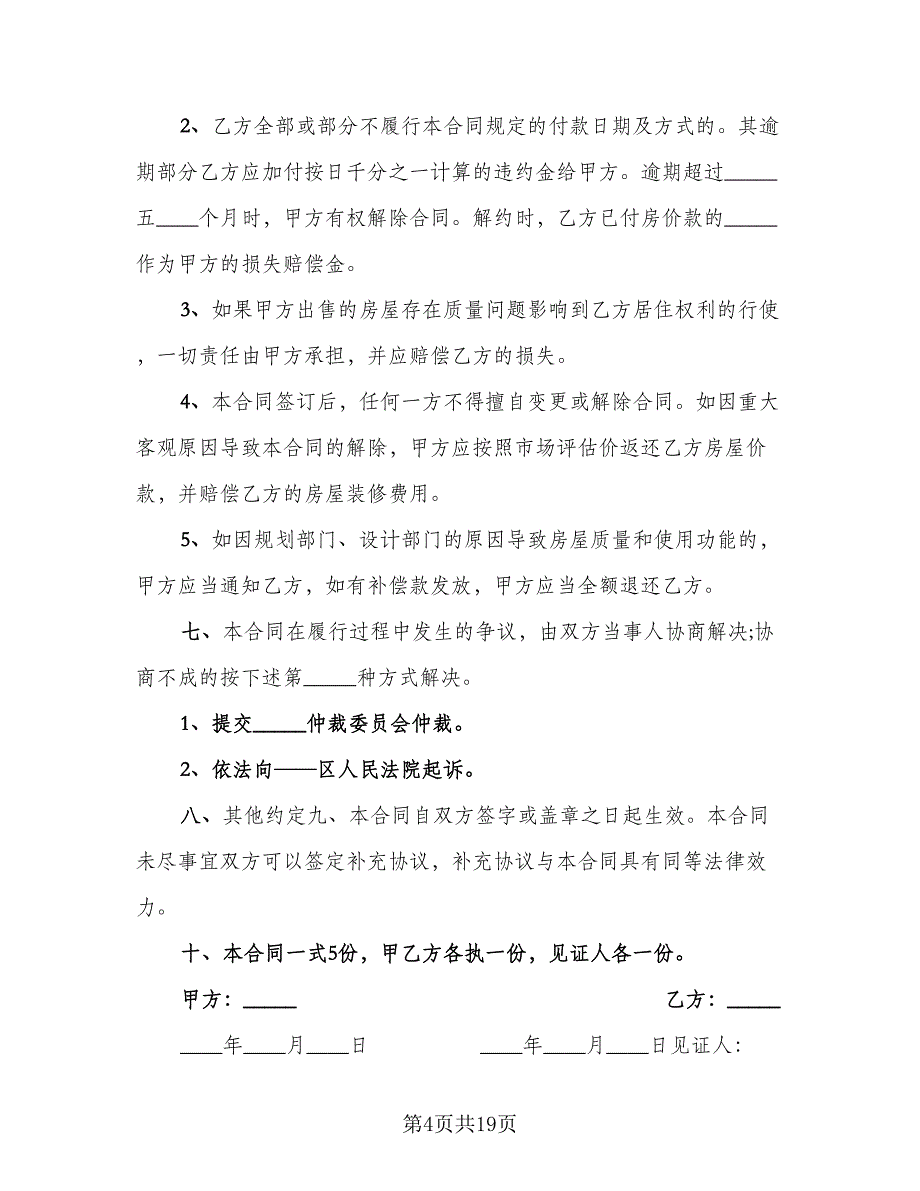 2、乙方全部或部分不履行本合同规定的付款日期及方式的。其逾
期部分乙方应加付按日千分之一计算的违约金给甲方。逾期超过_____
五____个月时，甲方有权解除合同。解约时，乙方已付房价款的_____
作为甲方的损失赔偿金。
3、如果甲方出售的房屋存在质量问题影响到乙方居住权利的行使
，一切责任由甲方承担，并应赔偿乙方的损失。
4、本合同签订后，任何一方不得擅自变更或解除合同。如因重大
客观原因导致本合同的解除，甲方应按照市场评估价返还乙方房屋价
款，并赔偿乙方的房屋装修费用。
5、如因规划部门、设计部门的原因导致房屋质量和使用功能的，
甲方应当通知乙方，如有补偿款发放，甲方应当全额退还乙方。
七、本合同在履行过程中发生的争议，由双方当事人协商解决;协
商不成的按下述第_____种方式解决。
1、提交_____仲裁委员会仲裁。
2、依法向——区人民法院起诉。
八、其他约定九、本合同自双方签字或盖章之日起生效。本合同
未尽事宜双方可以签定补充协议，补充协议与本合同具有同等法律效
力。
十、本合同一式5份，甲乙方各执一份，见证人各一份。
甲方：_____ 乙方：_____
____年____月____日 ____年____月____日见证人：
第4页共19页